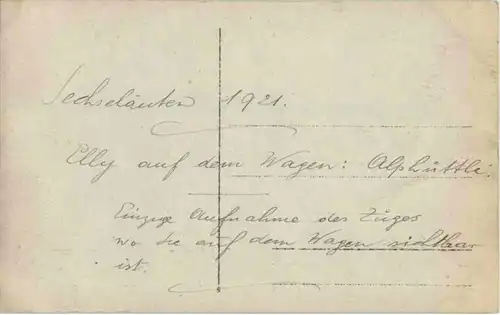 Sechseläuten 1921.
Elly auf dem Wagen: Alphüttli.
Einzige Aufnahme des Zuges
wo sie auf dem Wagen sichtbar
ist.